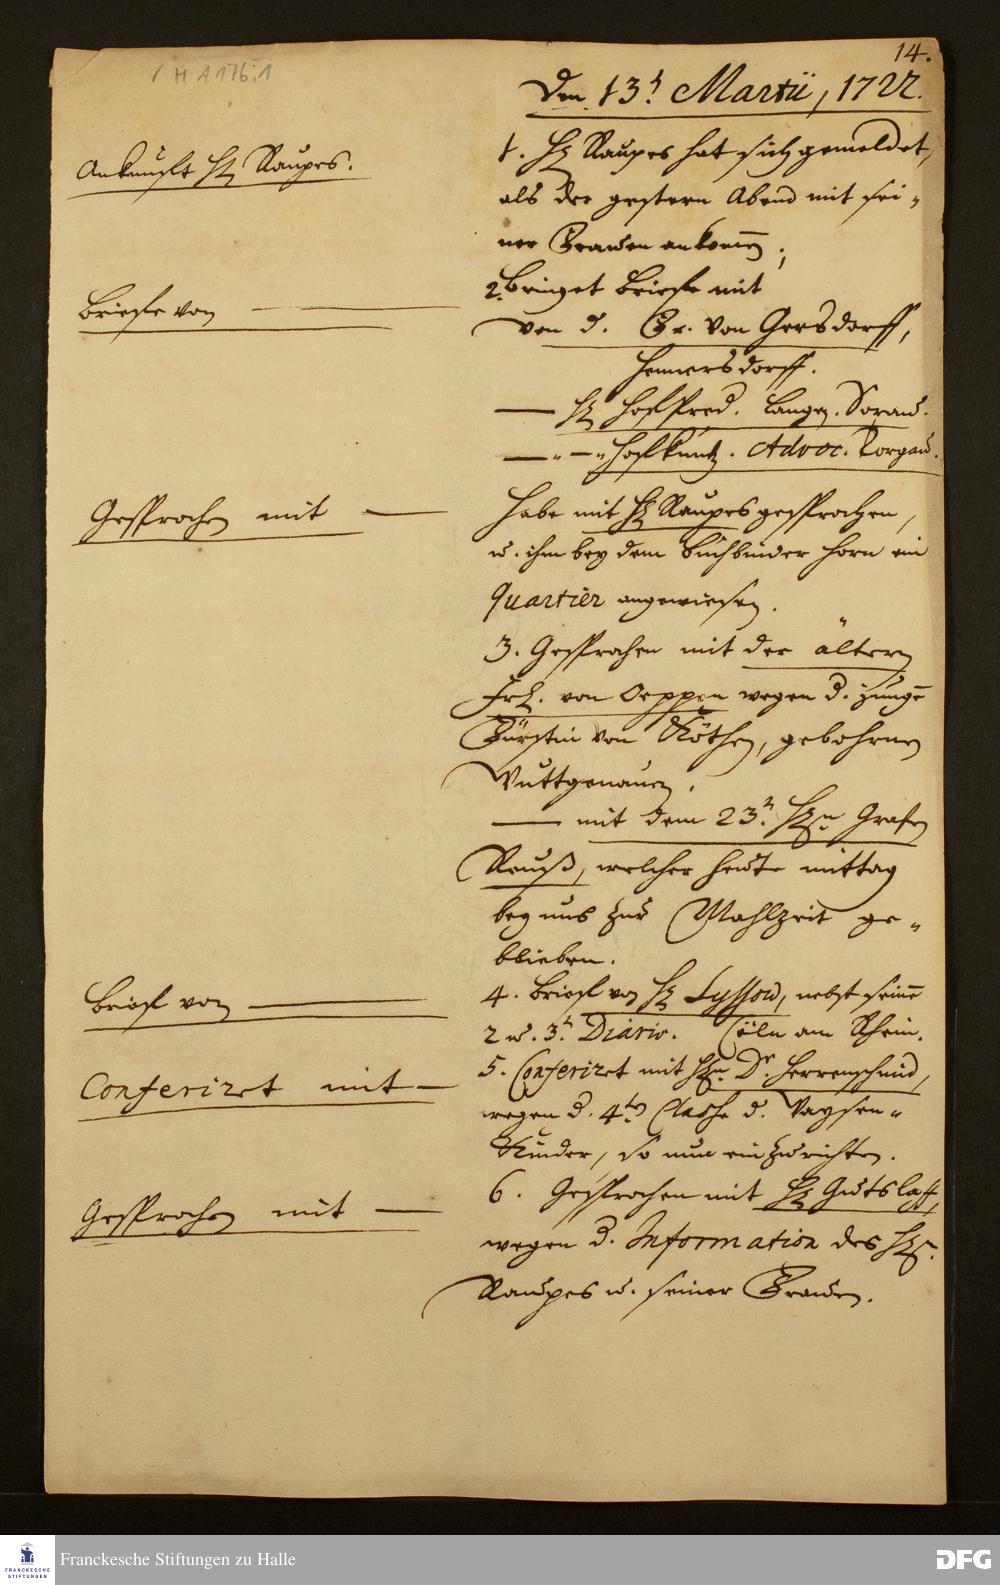 14.
H A 176:1
Den 13t Martii, 1722.
Ankunfft H. Raupes.
1. H. Raupes hat sich gemeldet,
als der gestern Abend mit sei-
ner Frauen ankom̄en;
Briefe von
2. bringet briefe mit
von d. Fr. von Gersdorff,
Hennersdorff.
H. Hoffpred. Langen. Sorau.
— " — " Hoffkuntz. Advoc. Torgau.
Gesprochen mit
Habe mit H. Raupes gesprochen,
u. ihm bey dem buchbinder Horn ein
Quartier angewiesen.
3. Gesprochen mit der ältern
Frl. von Oeppen wegen d. jungen
Fürstin von Köthen, gebohrnen
Wuttgenauen.
— mit dem 23t. Hrn Grafen
Reuß, welcher heute mittag
bey uns zur Mahlzeit ge-
blieben.
Brief von
4. Brief von H. Lyssow, nebst seinē
2 u. 3t. Diario. Cöln am Rhein.
Conferiret mit
5. Conferiret mit Hrn. Dr. Herrenschmid,
wegen d. 4ten Classe d. Waysen-
Kinder, so nun einzurichten.
Gesprochen mit
6. Gesprochen mit H. Gutslaff,
wegen d. Information des H.
Raupes u. seiner Frauen.
FRANCKESCHE
STIFTUNGEN
Franckesche Stiftungen zu Halle
DFG